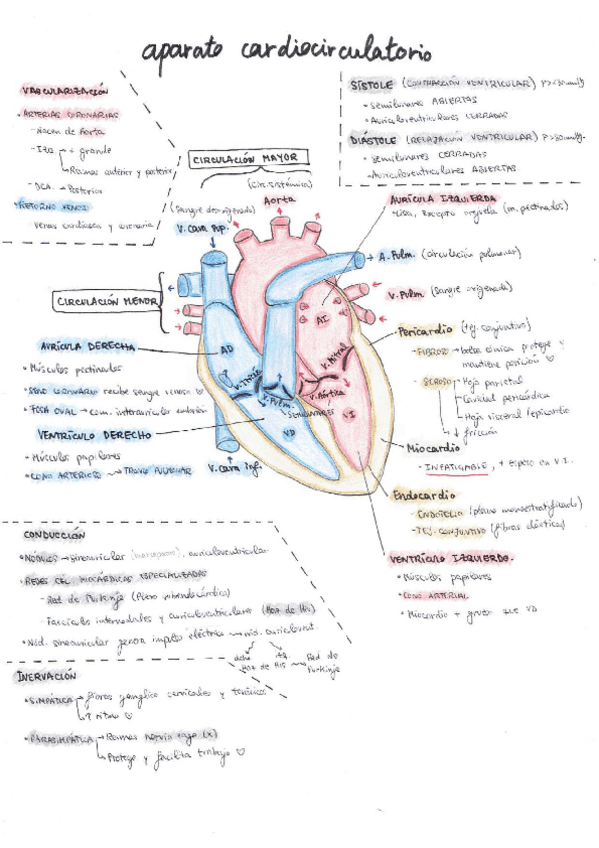 aparato cardiocirculatorio
VASCULARIZACIÓN
• ARTERIAS CORONARIAS
- Nacen de Aorta
- Izq → + grande
↳ Ramas anterior y posterior
- DCA. → Posterior
• RETORNO VENOSO
Venas cardíacas y coronaria
SÍSTOLE (CONTRACCIÓN VENTRICULAR)
- Semilunares ABIERTAS
- Auriculoventriculares CERRADAS
DIÁSTOLE (RELAJACIÓN VENTRICULAR)
- Semilunares CERRADAS
- Auriculoventriculares ABIERTAS
CIRCULACIÓN MAYOR
(Circ. sistémica)
Aorta
(Sangre desoxigenada)
V. cava sup.
AURÍCULA IZQUIERDA
- Lisa, excepto orejuela (m. pectinados)
A. Pulm. (circulación pulmonar)
V. Pulm (Sangre oxigenada)
CIRCULACIÓN MENOR
AURÍCULA DERECHA
• Músculos pectinados
• SENO CORONARIO recibe sangre venosa ♡
• FOSA OVAL → com. interauricular embrión
VENTRÍCULO DERECHO
• Músculos papilares
• CONO ARTERIOSO → TRONCO PULMONAR
V. cava inf.
AD
AI
V. Mitral
V. Aórtica
V. Pulm.
SEMILUNARES
VD
VI
Pericardio (tj. conjuntivo)
- FIBROSO → bolsa cónica protege y
mantiene posición ♡
- SEROSO → Hoja parietal
Cavidad pericárdica
Hoja visceral / epicardio
↓ fricción
Miocardio
- INFATIGABLE, + espeso en V.I.
Endocardio
- ENDOTELIO (plano monoestratificado)
- TEJ. CONJUNTIVO (fibras elásticas)
VENTRÍCULO IZQUIERDO.
• Músculos papilares
• CONO ARTERIAL
• Miocardio + grueso que VD
CONDUCCIÓN
• NÓDULOS → sinoauricular (marcapasos), auriculoventricular
• REDES CEL. MIOCÁRDICAS ESPECIALIZADAS
- Red de Purkinje (Plexo subendocárdico)
- Fascículos internodales y auriculoventriculares (Haz de His)
• Nód. sinoauricular genera impulso eléctrico → nód. auriculovent.
dcho izq.
Haz de His → Red de
Purkinje
INERVACIÓN
• SIMPÁTICA → fibras ganglios cervicales y torácicos
↳ ↑ ritmo ♡
• PARASIMPÁTICA → Ramas nervio vago (X)
↳ Protege y facilita trabajo ♡